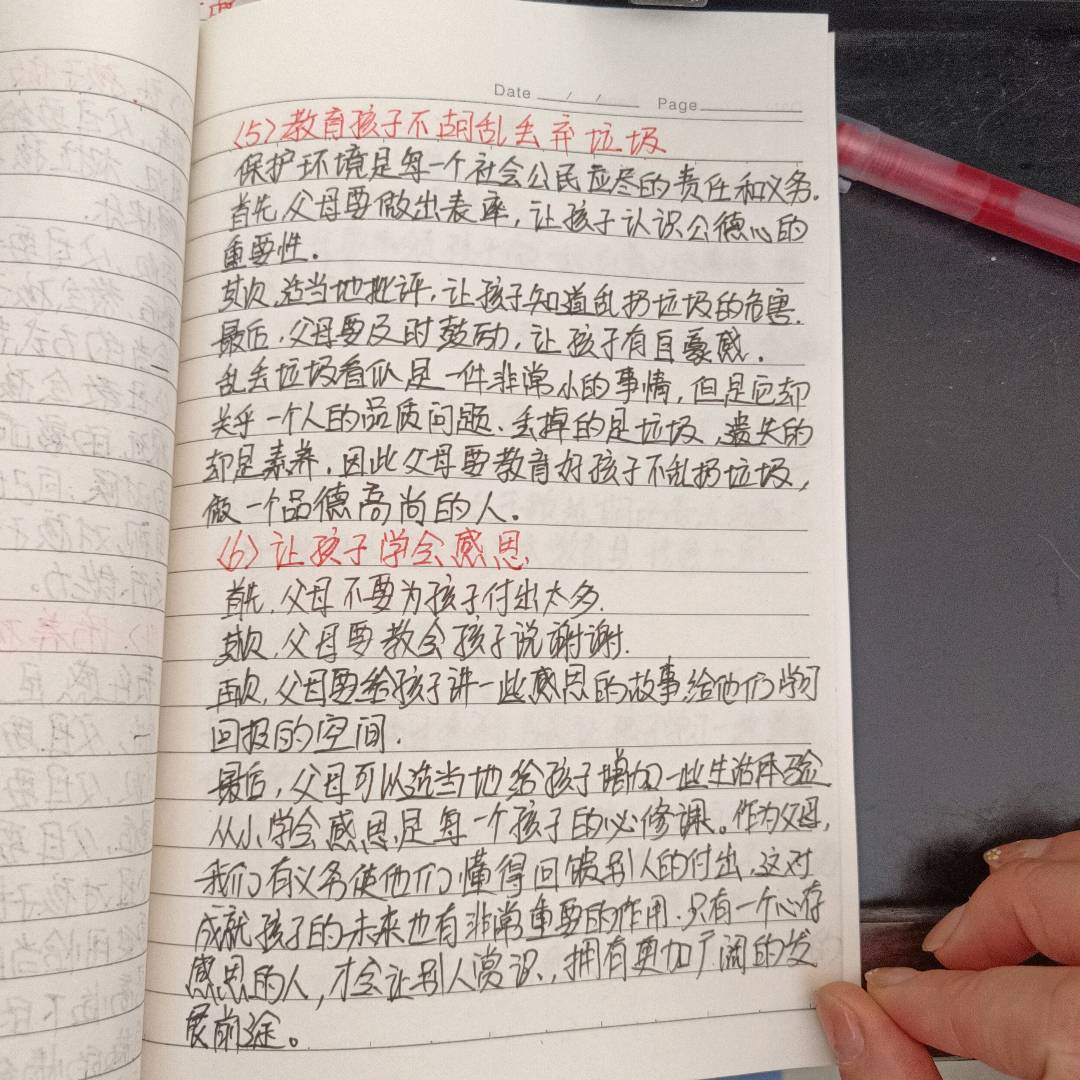 Date / / Page
(5)教育孩子不胡乱丢弃垃圾
保护环境是每一个社会公民应尽的责任和义务.
首先,父母要做出表率,让孩子认识公德心的
重要性.
其次,适当地批评,让孩子知道乱扔垃圾的危害.
最后,父母要及时鼓励,让孩子有自豪感.
乱丢垃圾看似是一件非常小的事情,但是它却
关乎一个人的品质问题.丢掉的是垃圾,遗失的
却是素养,因此父母要教育好孩子不乱扔垃圾,
做一个品德高尚的人。
(6)让孩子学会感恩
首先,父母不要为孩子付出太多.
其次,父母要教会孩子说谢谢.
再次,父母要给孩子讲一些感恩的故事,给他们学习
回报的空间.
最后,父母可以适当地给孩子增加一些生活体验
从小学会感恩,是每一个孩子的必修课。作为父母,
我们有义务使他们懂得回报别人的付出,这对
成就孩子的未来也有非常重要的作用.只有一个心存
感恩的人,才会让别人赏识,拥有更加广阔的发
展前途。